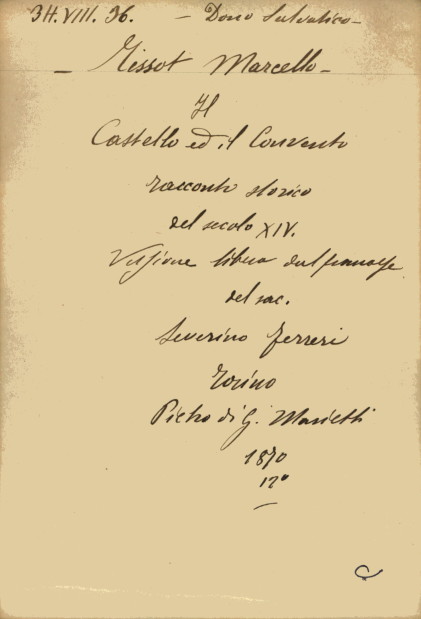 34.VIII.36. - Dono Salvatico -
- Tissot Marcello -
Il
Castello ed il Convento
racconto storico
del secolo XIV.
Versione libera dal francese
del sac.
Severino Ferreri
Torino
Pietro di G. Marietti
1870
12°